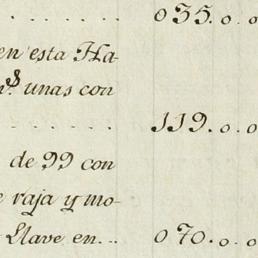 . . . . . . . 035. o. o
en esta Ha-
n.s unas con
. . . . . . . 119. o. o
de 99 con
e raja y mo-
Llave en... 070. o. o